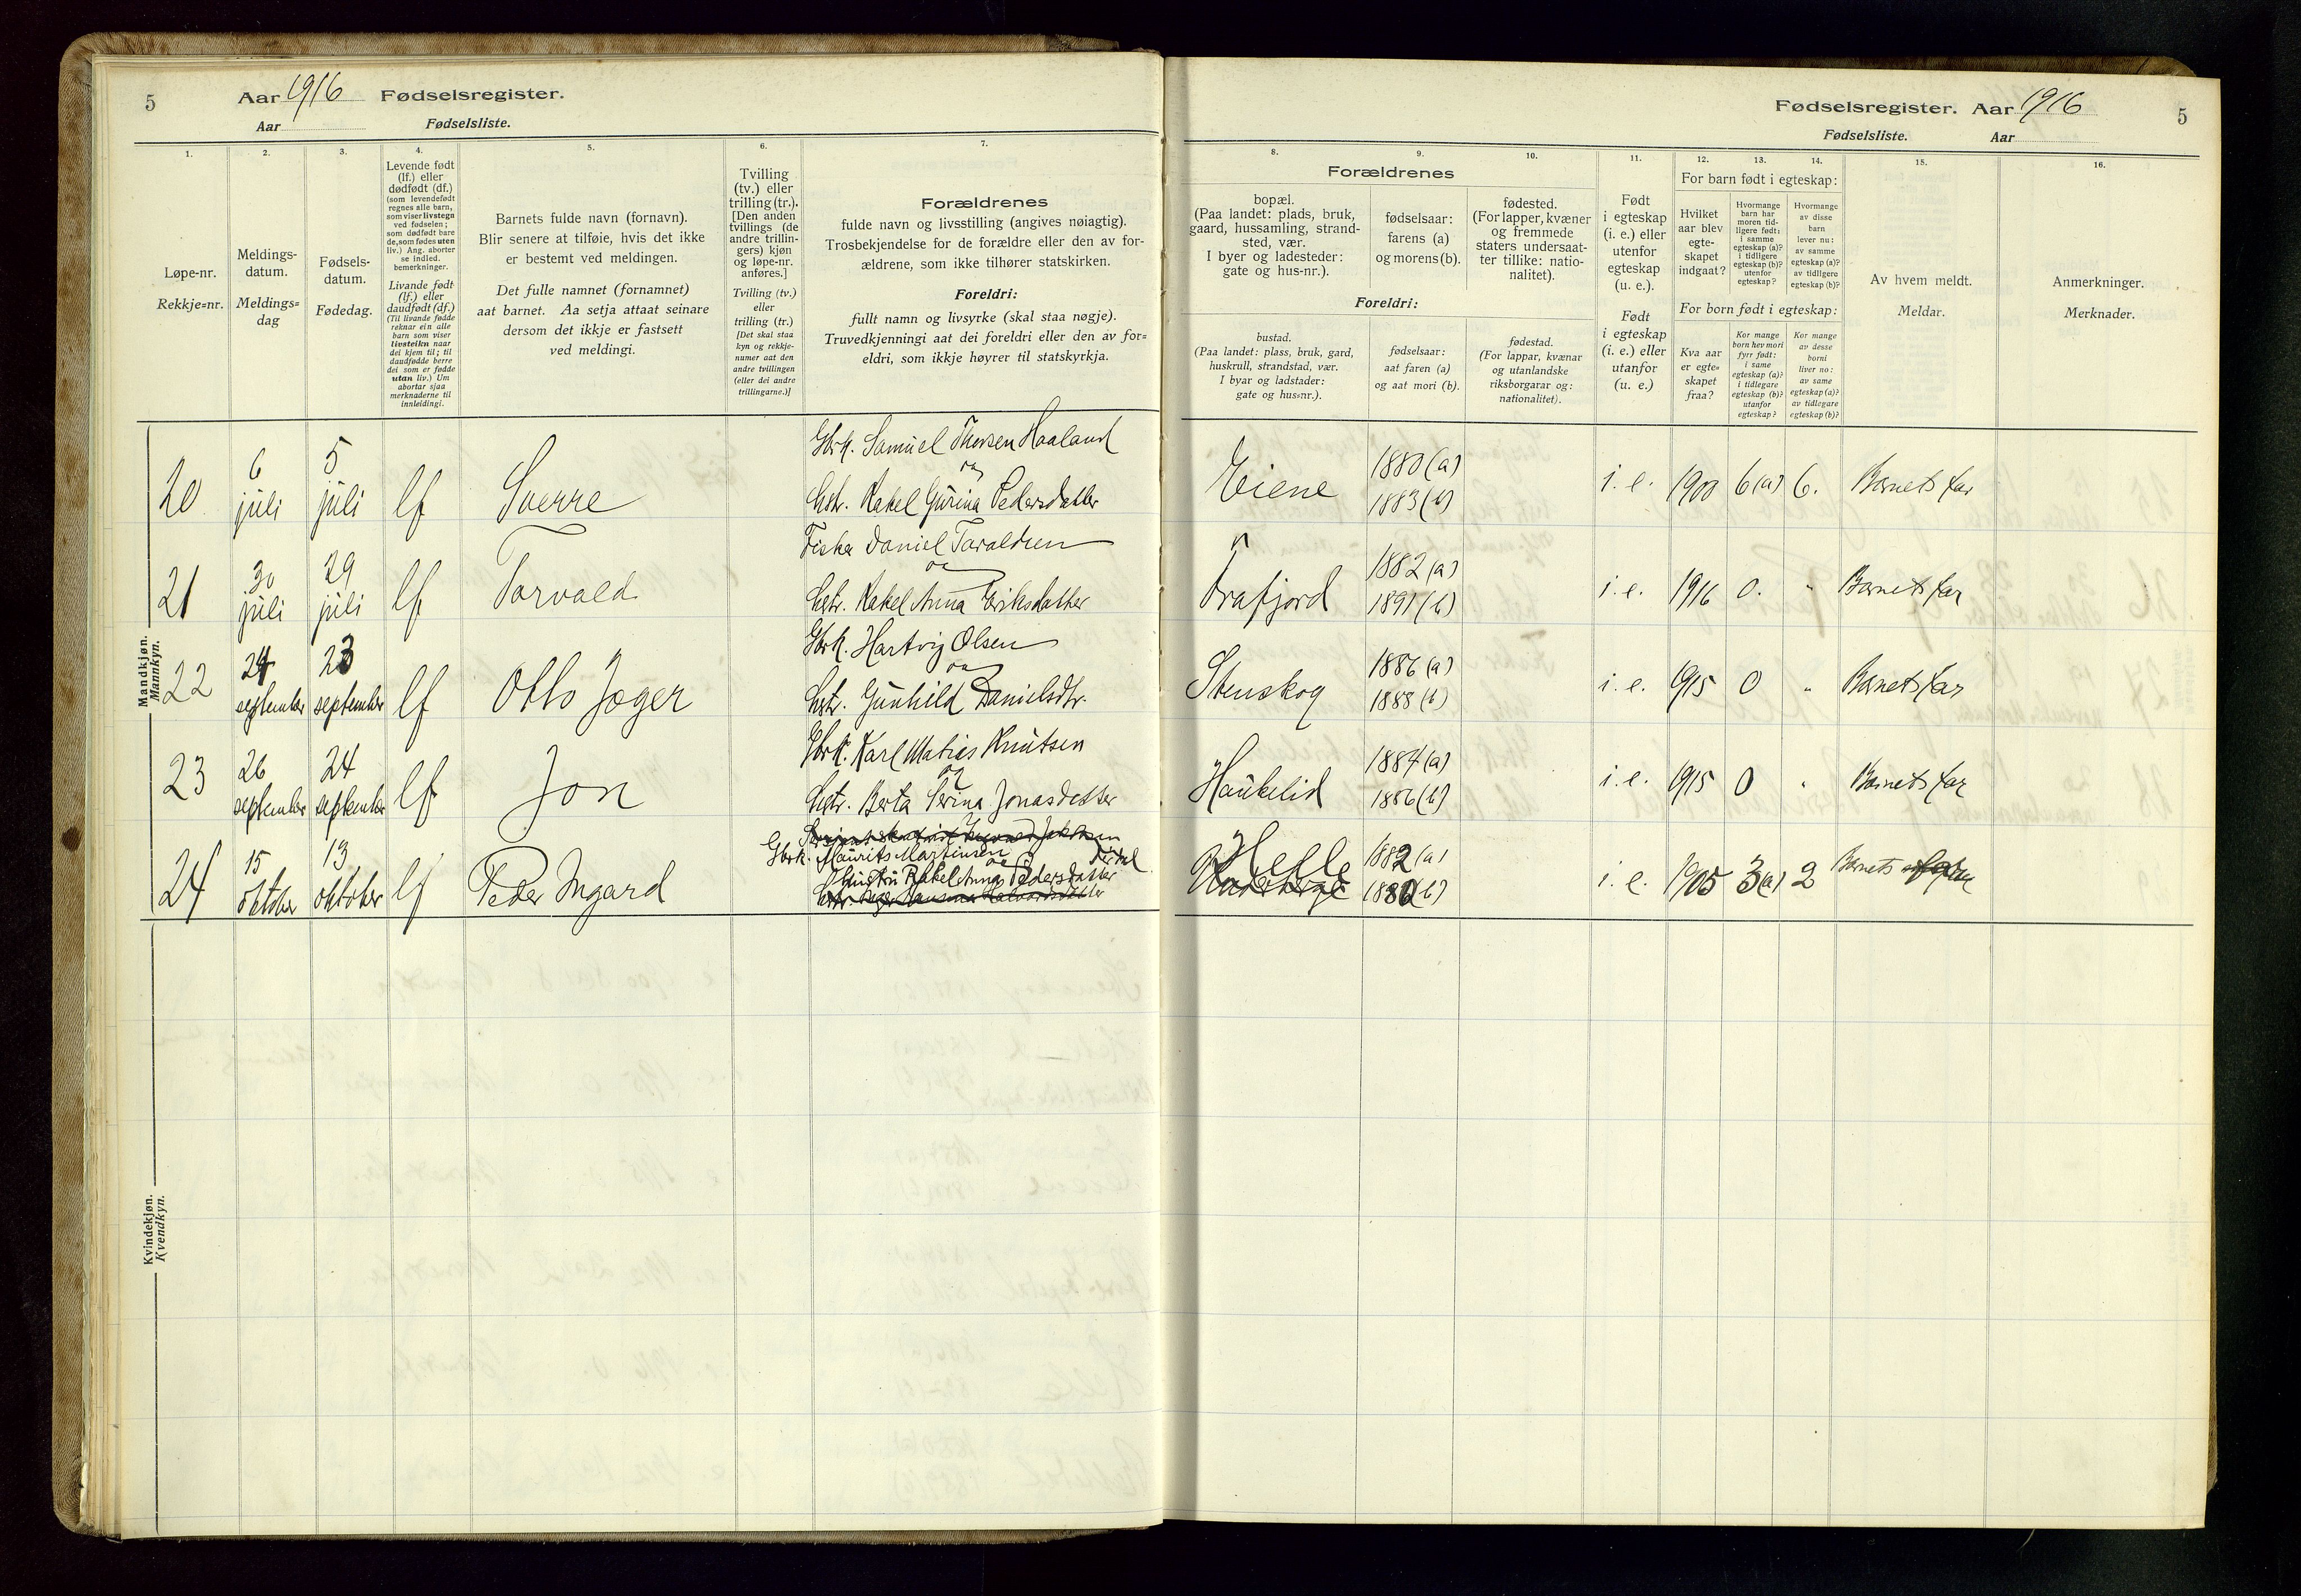 5
Aar 1916 Fødselsregister.
Aar Fødselsliste.
1.
2.
3.
4.
5.
6.
7.
Løpe-nr.
Rekkje=nr.
Meldings-
datum.
Meldings=
dag
Fødsels-
datum.
Fødedag.
Levende født
(lf.) eller
dødfødt (df.)
(som levendefødt
regnes alle barn,
som viser livstegn
ved fødselen;
som dødfødt bare
de, som fødes uten
liv.) Ang. aborter
se indled.
bemerkninger.
Livande født
(lf.) eller
daudfødt (df.)
(Til livande fødde
reknar ein alle
barn som viser
livsteikn naar
dei kjem til; til
daudfødde berre
dei som er fødde
utan liv.) Um
abortar sjaa
merknaderne til
innleidingi.
Barnets fulde navn (fornavn).
Blir senere at tilføie, hvis det ikke
er bestemt ved meldingen.
Det fulle namnet (fornamnet)
aat barnet. Aa setja attaat seinare
dersom det ikkje er fastsett
ved meldingi.
Tvilling
(tv.) eller
trilling (tr.).
[Den anden
tvillings (de
andre trillin-
gers) kjøn
og løpe-nr.
anføres.]
Tvilling (tv.)
eller
trilling (tr.)
[Det skal staa
kyn og rekkje-
numer aat den
andre tvillingen
(eller dei andre
trillingarne.)]
Forældrenes
fulde navn og livsstilling (angives nøiagtig).
Trosbekjendelse for de forældre eller den av for-
ældrene, som ikke tilhører statskirken.
Foreldri:
fullt namn og livsyrke (skal staa nøgje).
Truvedkjenningi aat dei foreldri eller den av for=
eldri, som ikkje høyrer til statskyrkja.
Fødselsregister. Aar 1916
Fødselsliste. Aar
5
8.
9.
10.
11.
12.
13.
14.
15.
16.
Forældrenes
bopæl.
(Paa landet: plads, bruk,
gaard, hussamling, strand-
sted, vær.
I byer og ladesteder:
gate og hus-nr.).
fødselsaar:
farens (a)
og morens (b).
fødested.
(For lapper, kvæner
og fremmede
staters undersaat-
ter tillike: natio-
nalitet).
Foreldri:
bustad.
(Paa landet: plass, bruk, gard,
huskrull, strandstad, vær.
I byar og ladstader:
gate og hus=nr.).
fødselsaar:
aat faren (a)
og aat mori (b).
fødestad.
(For lappar, kvænar
og utanlandske
riksborgarar og:
nationalitet).
Født
i egteskap
(i. e.) eller
utenfor
egteskap
(u. e.).
Født
i egteskap
(i. e.) eller
utanfor
(u. e.)
For barn født i egteskap:
Hvilket
aar blev
egte-
skapet
indgaat?
Hvormange
barn har
moren tid-
ligere født:
i samme
egteskap (a)?
i tidligere
egteskap (b)?
utenfor
egteskap?
Hvormange
av disse
barn
lever nu:
av samme
egteskap (a)?
av tidligere
egteskap (b)?
For born født i egteskap:
Kva aar
er egte=
skapet
fraa?
Kor mange
born hev mori
fyrr født:
i same
egteskap (a)?
i tidlegare
egteskap (b)?
utanfor
egteskap?
Kor mange
av desse
borni
liver no:
av same
egteskap (a)?
av tidlegare
egteskap (b)?
Av hvem meldt.
Meldar.
Anmerkninger.
Merknader.
Mandkjøn.
Mannkyn.
20 6 juli 5 juli lf Sverre
Gbrk. Samuel Thorsen Haaland
og
hstr. Rakel Gurina Pedersdatter
Eiene 1880 (a) 1883 (b) i. e. 1900 6 (a) 6. Barnets far
21 30 juli 29 juli lf Torvald
Fisker Daniel Taraldsen
og
hstr. Rakel Anna Eriksdatter
Frafjord 1882 (a) 1891 (b) i. e. 1916 0. " Barnets far
22 24 september 23 september lf Otto Jøger
Gbrk. Hartvig Olsen
og
hstr. Gunhild Danielsdtr.
Stenskog 1886 (a) 1888 (b) i. e. 1915 0 " Barnets far
23 26 september 24 september lf Jon
Gbrk. Karl Matias Knutsen
og
hstr. Berta Serina Jonasdatter
Haukelid 1884 (a) 1886 (b) i. e. 1915 0 " Barnets far
24 15 oktober 13 oktober lf Peder Ingard
Gbrk. Maurits Martinsen
og
Hustru Rakel Anna Pedersdatter
Helle 1882 (a) 1880 (b) i. e. 1905 3 (a) 2 Barnets
Kvindekjøn.
Kvendkyn.